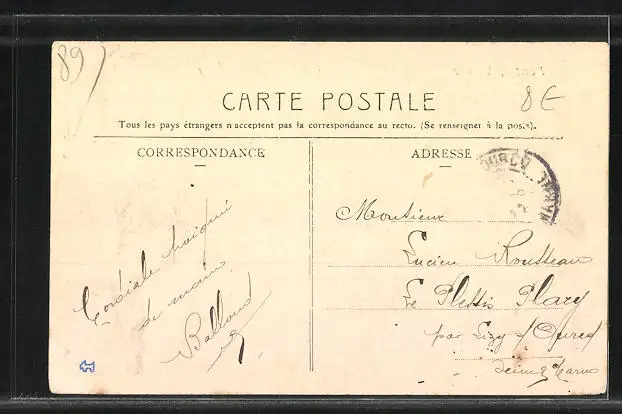 89
CARTE POSTALE
8€
Tous les pays étrangers n'acceptent pas la correspondance au recto. (Se renseigner à la poste).
CORRESPONDANCE
ADRESSE
OURCQ
Cordiale poignée
de main
Balloud
Monsieur
Lucien Rousseau
Le Plessis Placy
par Lizy s/Ourcq
Seine & Marne